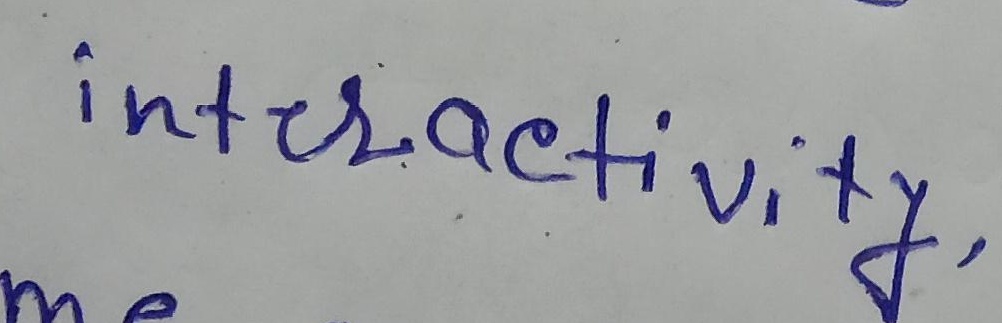 interactivity,
me